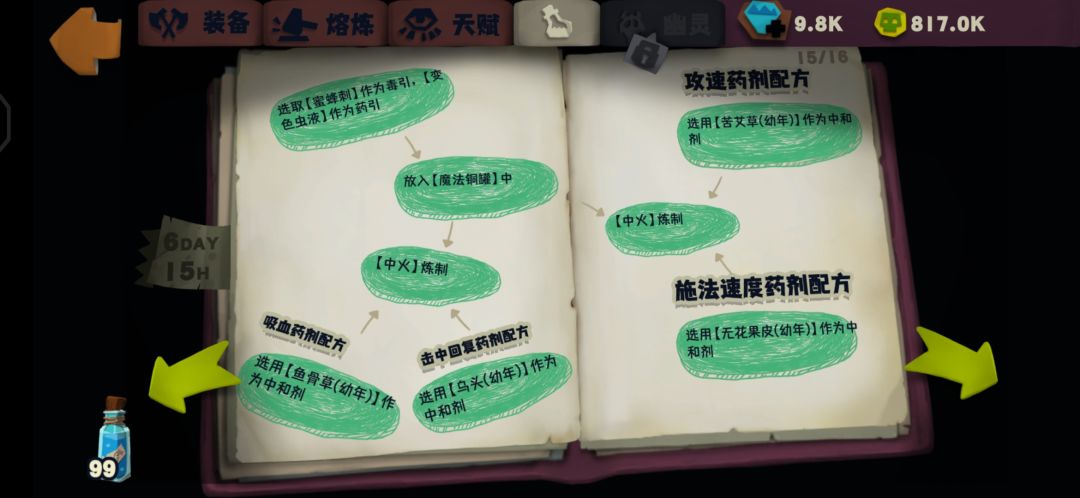 装备
熔炼
天赋
幽灵
9.8K
817.0K
15/16
选取【蜜蜂刺】作为毒引，【变
色虫液】作为药引
放入【魔法铜罐】中
【中火】炼制
吸血药剂配方
选用【鱼骨草(幼年)】作
为中和剂
击中回复药剂配方
选用【乌头(幼年)】作为
中和剂
攻速药剂配方
选用【苦艾草(幼年)】作为中和
剂
【中火】炼制
施法速度药剂配方
选用【无花果皮(幼年)】作为中
和剂
6DAY
15H
99